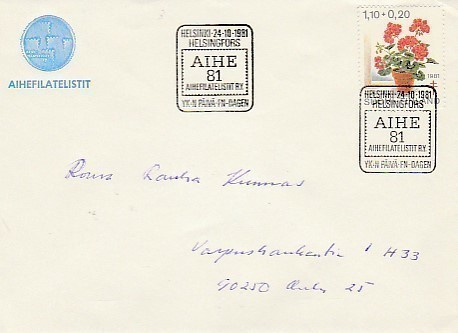 AIHEFILATELISTIT
HELSINKI-24-10-1981
HELSINGFORS
AIHE
81
AIHEFILATELISTIT RY.
YK-N PÄIVÄ-FN-DAGEN
1,10+0,20
1981
HELSINKI-24-10-1981
HELSINGFORS
AIHE
81
AIHEFILATELISTIT RY.
YK-N PÄIVÄ-FN-DAGEN
Rouva
H33
90250 Oulu 25